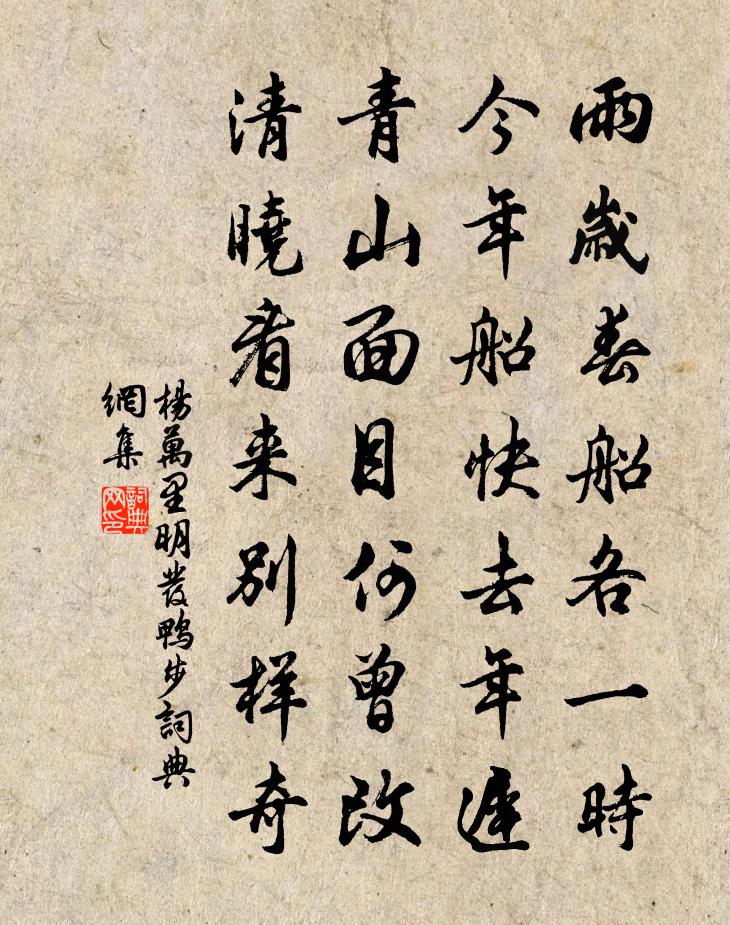 兩歲春船各一時
今年船快去年遲
青山面目何曾改
清曉看来別樣奇
楊萬里明發鴨步詞典
網集
詞典
网印